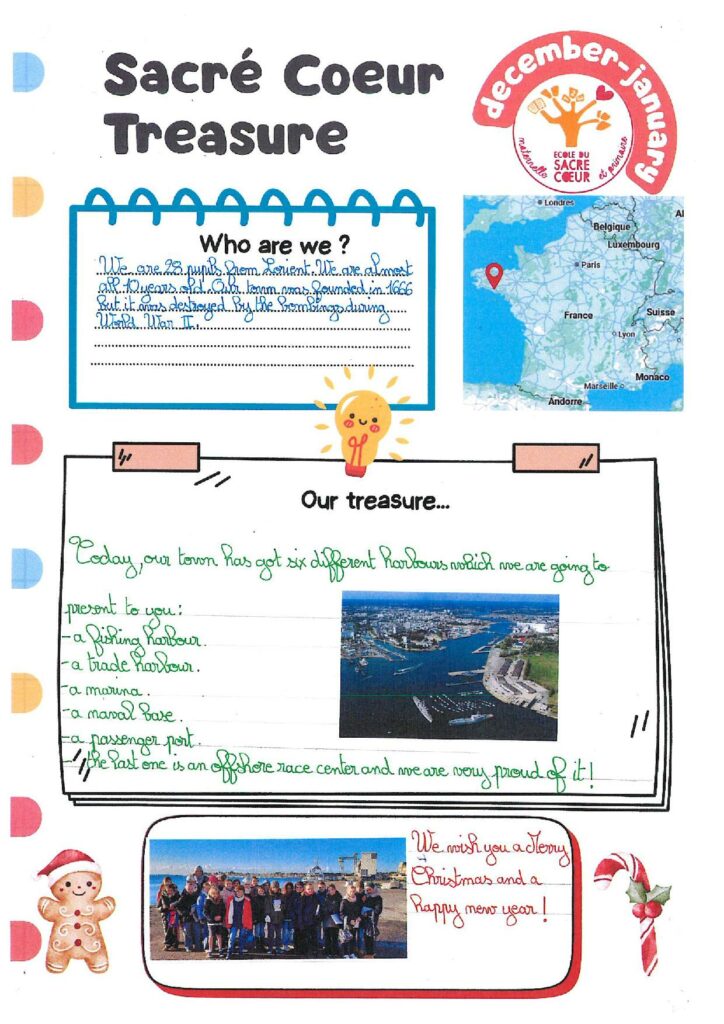 Sacré Coeur
Treasure
december-january
ECOLE DU
SACRE
CŒUR
maternelle et primaire
Who are we ?
We are 28 pupils from Lorient. We are almost
all 10 years old. Our town was founded in 1666
but it was destroyed by the bombings during
World War II.
Londres
Belgique
Luxembourg
Paris
France
Suisse
Lyon
Monaco
Marseille
Andorre
Al
Our treasure...
Today, our town has got six different harbours which we are going to
present to you:
-a fishing harbour.
-a trade harbour.
-a marina.
-a naval base.
-a passenger port.
- the last one is an offshore race center and we are very proud of it!
We wish you a Merry
Christmas and a
happy new year!